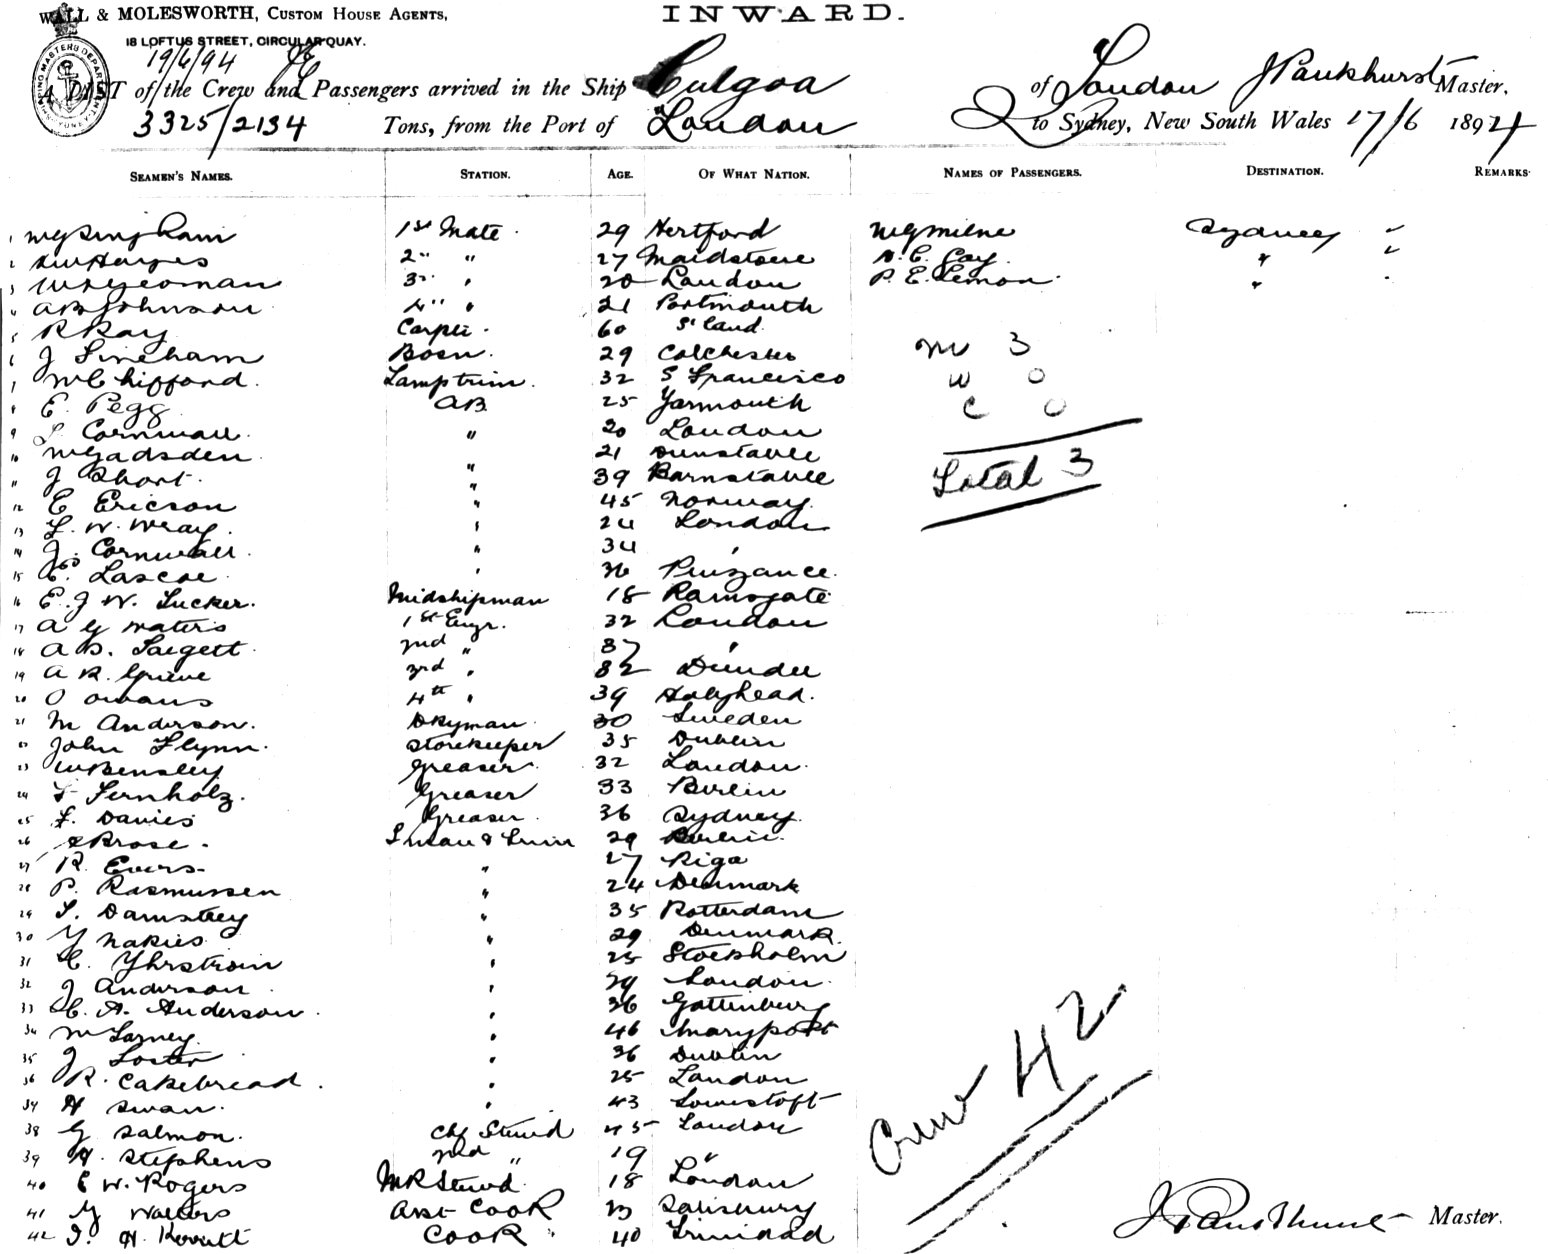 WALL & MOLESWORTH, CUSTOM HOUSE AGENTS,
INWARD.
18 LOFTUS STREET, CIRCULAR QUAY.
19/6/94
A LIST of the Crew and Passengers arrived in the Ship Culgoa of London J Pankhurst Master,
3325/2134 Tons, from the Port of London to Sydney, New South Wales 17/6 1894
SEAMEN'S NAMES. STATION. AGE. OF WHAT NATION. NAMES OF PASSENGERS. DESTINATION. REMARKS.
1 1st Mate. 29 Hertford W G Milne Sydney
2 2" " 27 Maidstone
3 W H Yeoman 3" " 20 London P. E. Lemon "
4 A B Johnson 4" " 21 Portsmouth
5 R Ray 60
6 J Lineham Bosn. 29 Colchester M 3
7 Lamptrim. 32 S Francisco W 0
8 E. Pegg AB 25 Yarmouth C 0
9 Cornwall " 20 London
10 W Gadsden 21 Dunstable
11 J Short. " 39 Barnstable Total 3
12 E Ericson " 45 Norway
13 L. W. Wray. " 24 London
14 J. Cornwall " 34 "
15 Lascoe " Penzance.
16 E. J W. Tucker. Midshipman 18 Ramsgate
17 A G Waters 1st Engr. 32 London
18 A. Targett 2nd " 37 "
19 A R. Grieve 3rd " 32 Dundee
20 O Owans 4th " 39 Holyhead.
21 M Anderson. Dkyman 30 Sweden
22 John Flynn. Storekeeper 35 Dublin
23 W Bensley Greaser 32 London.
24 F Fernholz. Greaser 33 Berlin
25 F. Davies Greaser. 36 Sydney
26 Rose. 29 Berlin
27 R. Evers " 27 Riga
28 P. Rasmussen " 24 Denmark
29 " 35 Rotterdam
30 " 29 Denmark.
31 C. " 25 Stockholm
32 J Anderson " London.
33 C. A. Anderson. " 36 Gottenburg
34 " 46 Maryport
35 J " 36 Dublin
36 R. Cakebread. " 25 London
37 H Swan. " 43 Lowestoft
38 G Salmon. Chf Stewd 45 London
39 H. Stephens 2nd " 19 "
40 E W. Rogers 18 London
41 Walters Asst Cook 23 Salisbury
42 H. Cook 40 Trinidad
Crew 42
Master.